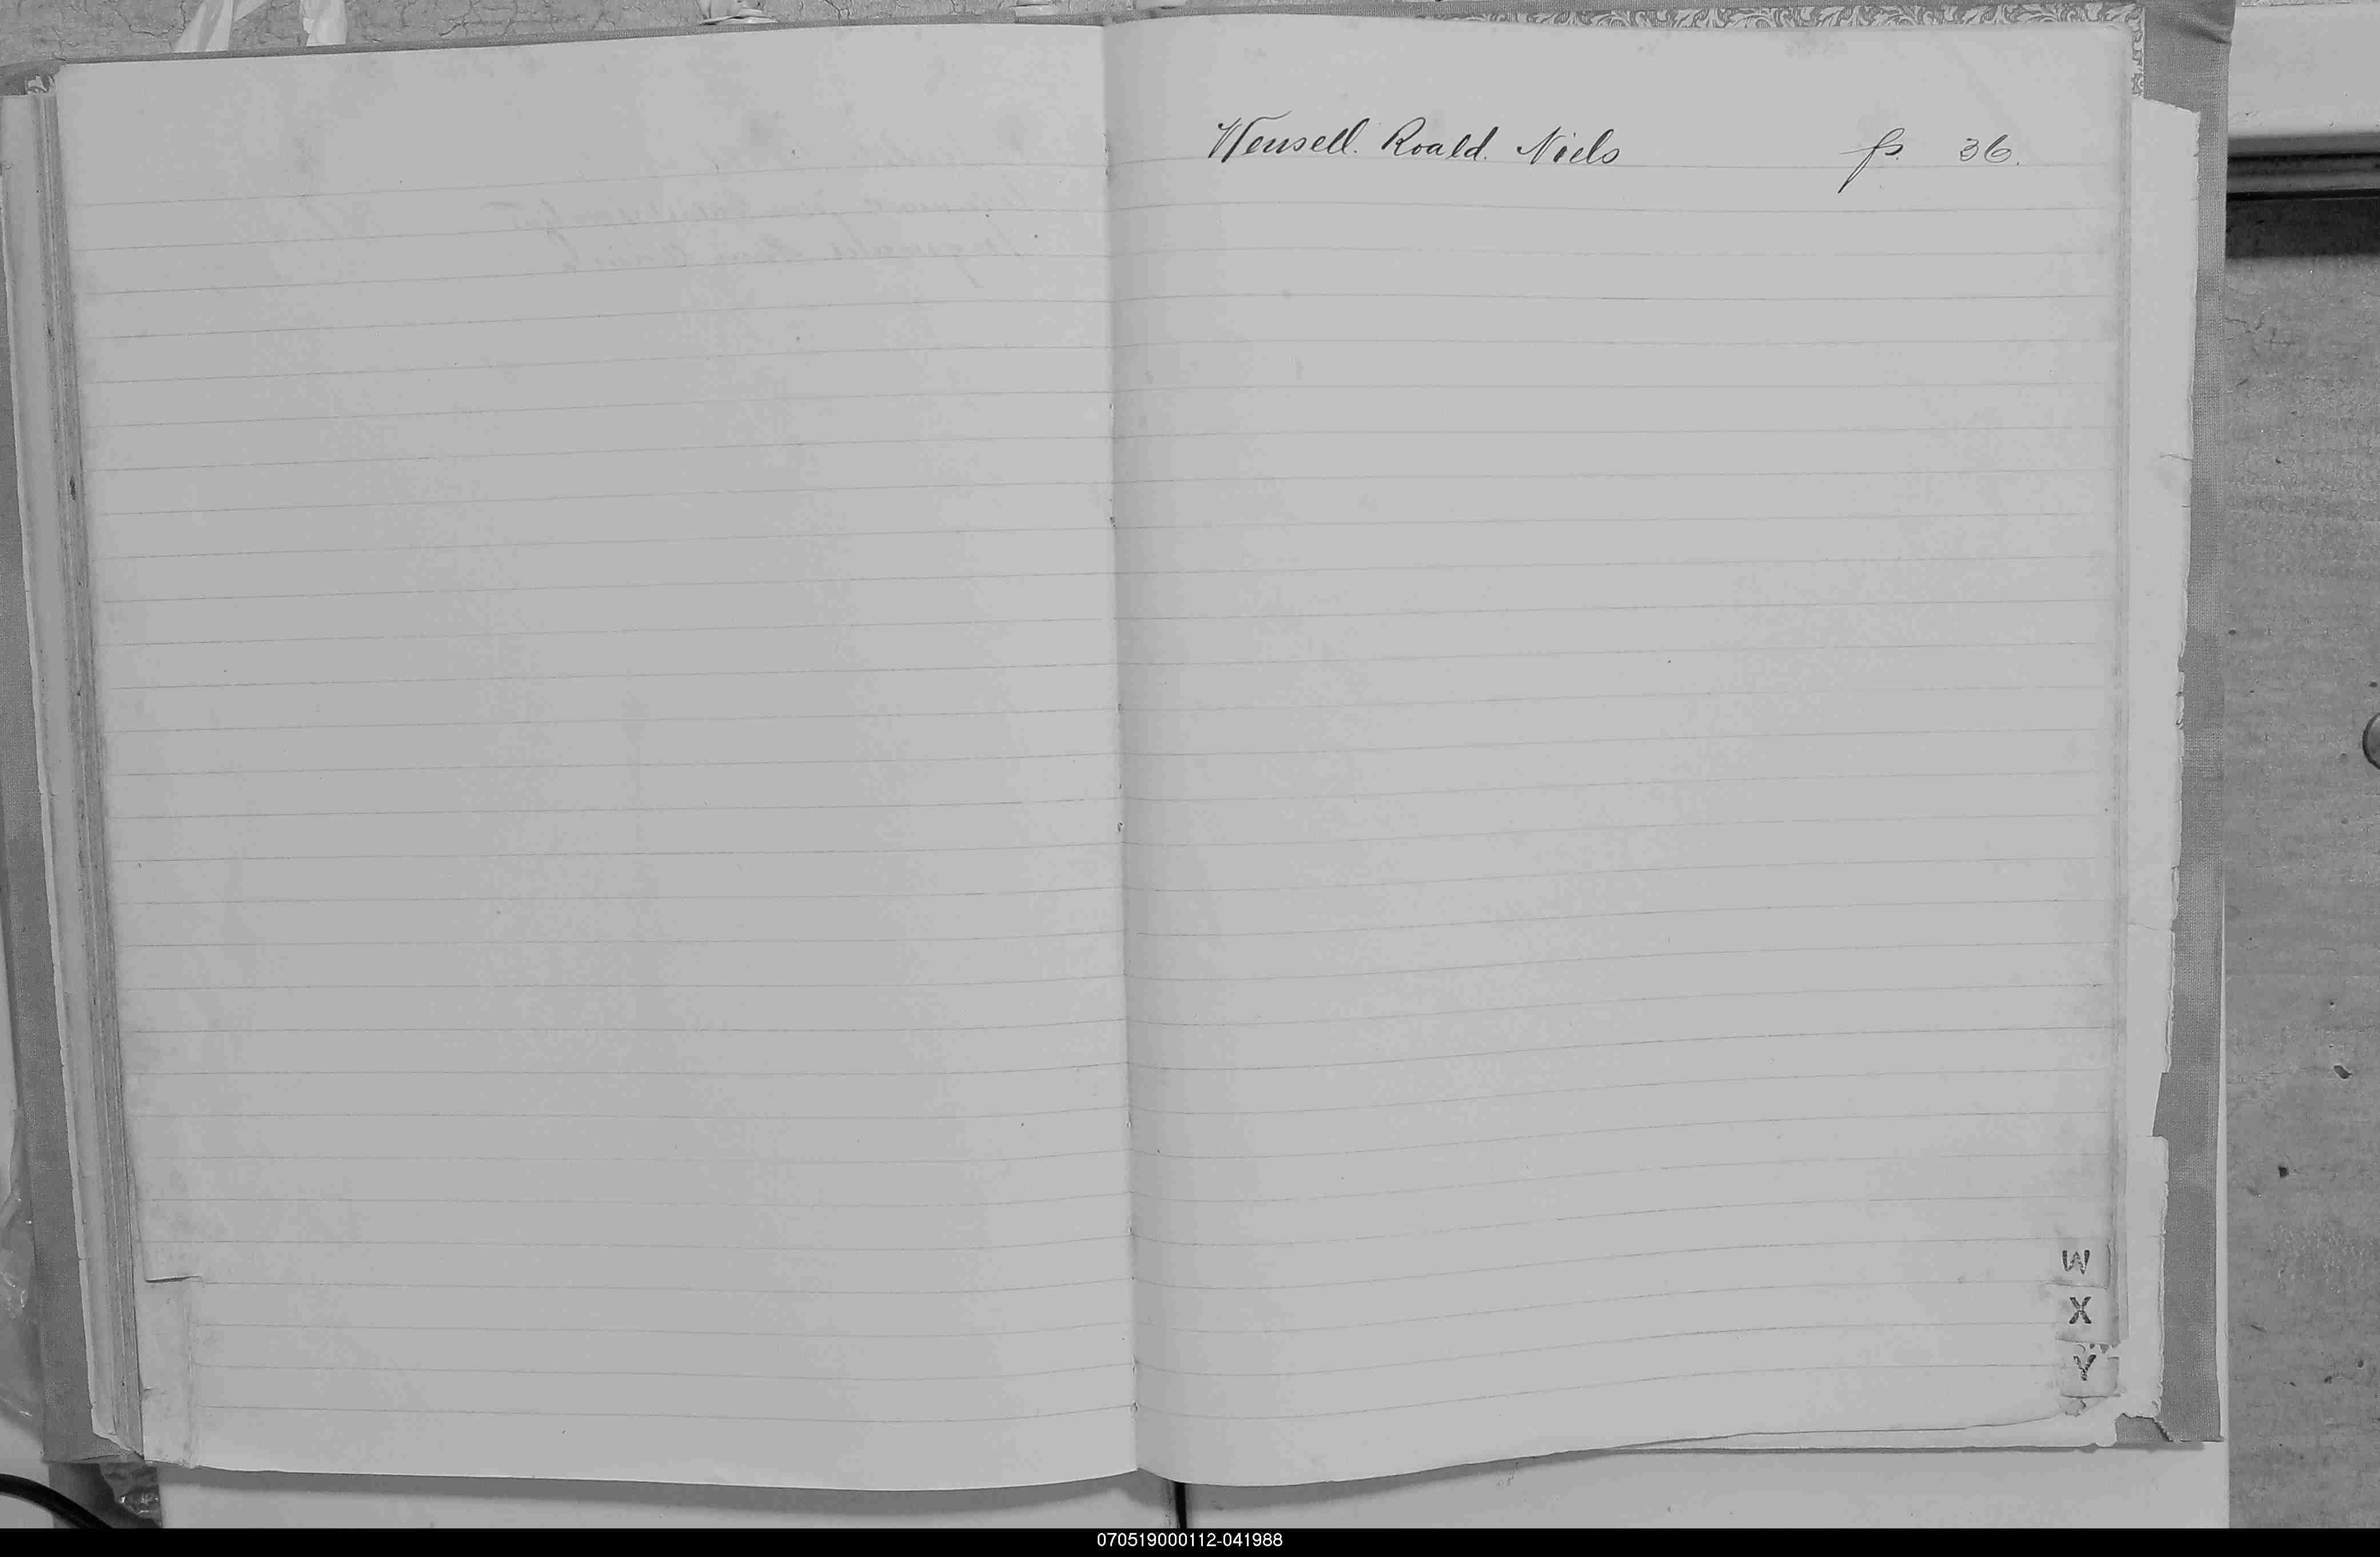 Wensell. Roald. Niels p. 36.
W
X
Y
070519000112-041988